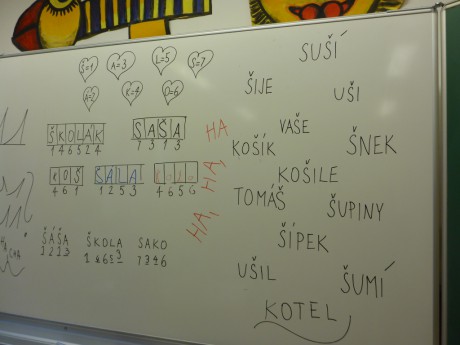 Š=1 A=3 L=5 S=7
Á=2 K=4 O=6
ŠKOLÁK SAŠA
1 4 6 5 2 4 7 3 1 3
KOŠ ŠÁLA
4 6 1 1 2 5 3 4 6 5 6
ŠÁŠA ŠKOLA SAKO
1 2 1 3
HA
HA,
HA,
SUŠÍ
ŠIJE
UŠI
VAŠE
KOŠÍK
ŠNEK
KOŠILE
TOMÁŠ
ŠUPINY
ŠÍPEK
UŠIL
ŠUMÍ
KOTEL